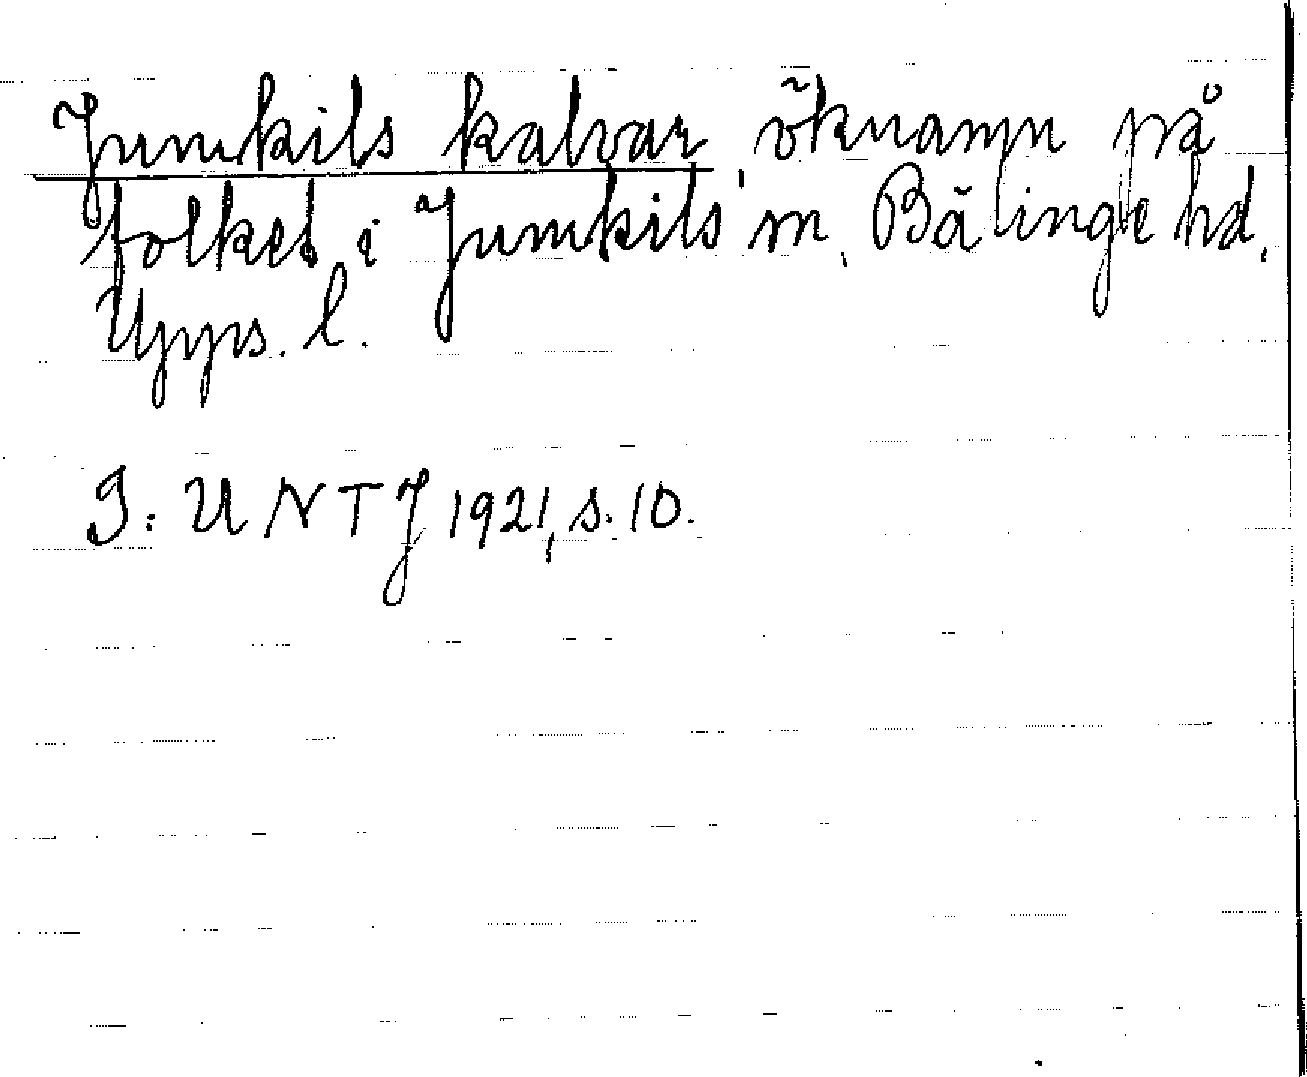 Jumkils kalvar, öknamn på
folket i Jumkils sn, Bälinge hd,
Upps. l.
I: UNTJ 1921, s. 10.